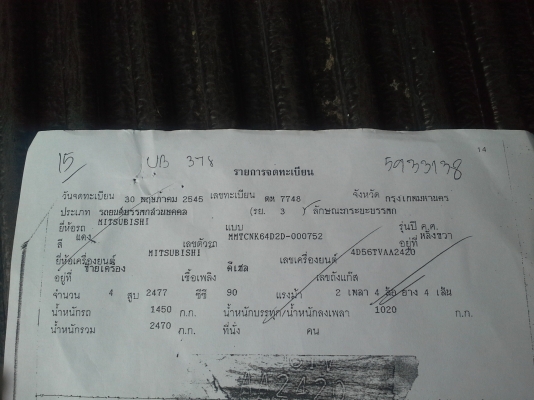 15 UB 378 5933138
14
รายการจดทะเบียน
วันจดทะเบียน 30 พฤษภาคม 2545 เลขทะเบียน 7748 จังหวัด กรุงเทพมหานคร
ประเภท รถยนต์บรรทุกส่วนบุคคล (รย. 3 ) ลักษณะกระบะบรรทุก
ยี่ห้อรถ MITSUBISHI แบบ รุ่นปี ค.ศ.
สี แดง เลขตัวรถ MMTCNK64D2D-000752 อยู่ที่ หลังขวา
ยี่ห้อเครื่องยนต์ MITSUBISHI เลขเครื่องยนต์ 4D56TVAA2420
อยู่ที่ ซ้ายเครื่อง เชื้อเพลิง ดีเซล เลขถังแก๊ส
จำนวน 4 สูบ 2477 ซีซี 90 แรงม้า 2 เพลา 4 ล้อ ยาง 4 เส้น
น้ำหนักรถ 1450 ก.ก. น้ำหนักบรรทุก/น้ำหนักลงเพลา 1020 ก.ก.
น้ำหนักรวม 2470 ก.ก. ที่นั่ง คน
AA2420